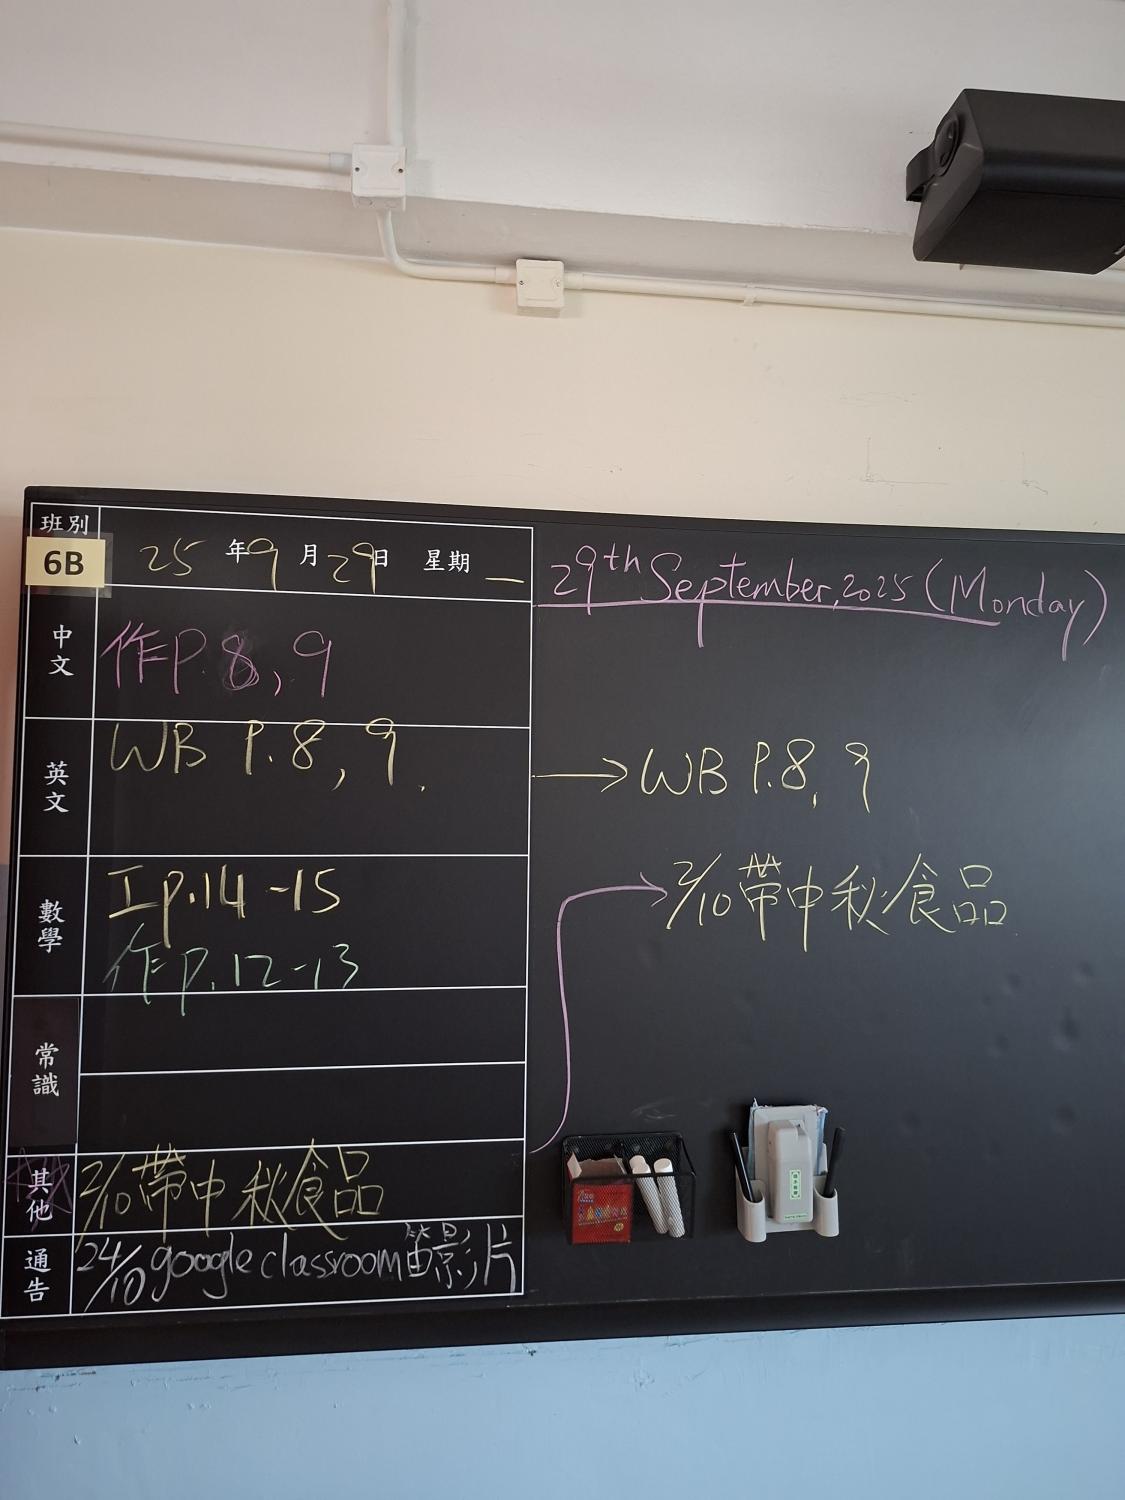 班別
6B
25年9月29日 星期一
中文
作P.8, 9
英文
WB P.8, 9.
數學
工p.14-15
作p.12-13
常識
其他
2/10帶中秋食品
通告
24/10 google classroom 笛影片
29th September, 2025 (Monday)
WB P.8, 9
2/10帶中秋食品